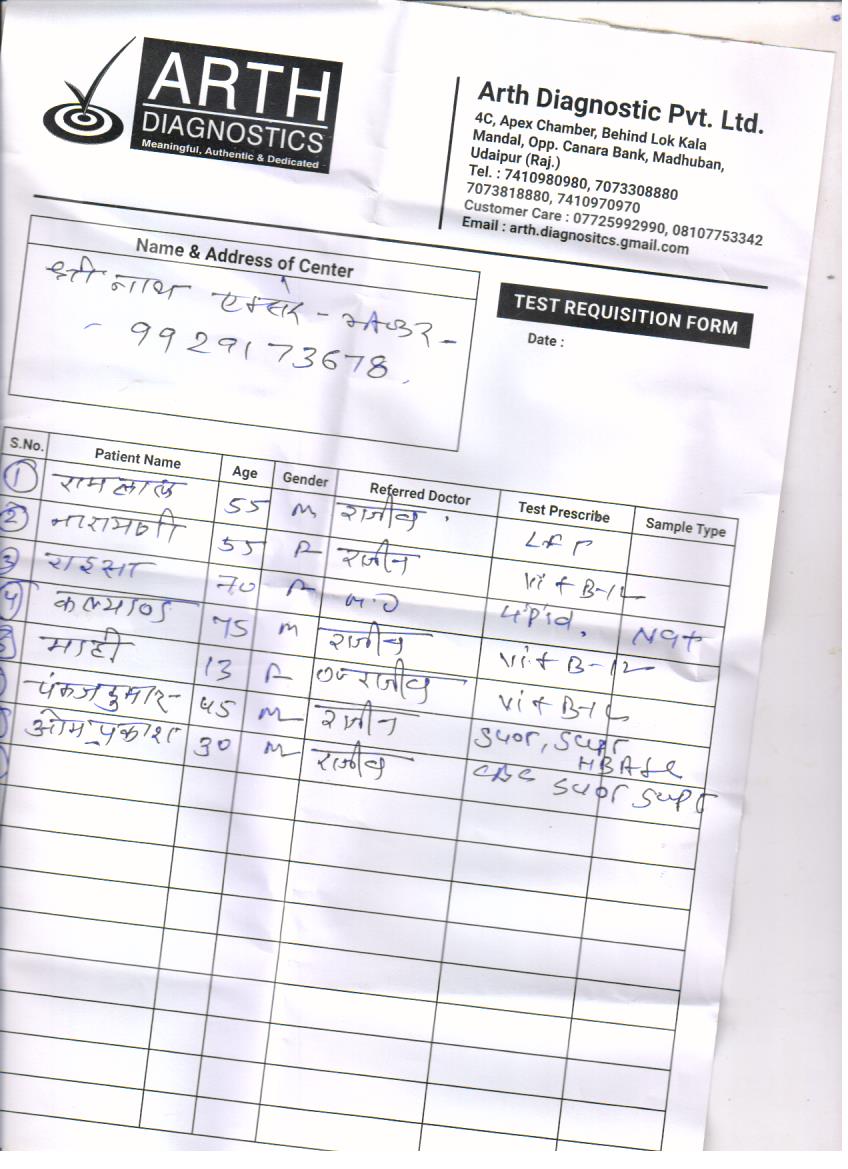 ARTH
DIAGNOSTICS
Meaningful, Authentic & Dedicated
Arth Diagnostic Pvt. Ltd.
4C, Apex Chamber, Behind Lok Kala
Mandal, Opp. Canara Bank, Madhuban,
Udaipur (Raj.)
Tel. : 7410980980, 7073308880
7073818880, 7410970970
Customer Care : 07725992990, 08107753342
Email : arth.diagnositcs.gmail.com
Name & Address of Center
श्री नाथ
- 9929173678
TEST REQUISITION FORM
Date :
S.No. Patient Name Age Gender Referred Doctor Test Prescribe Sample Type
1 रामलाल 55 M राजीव
2 55 F राजीव Vit B-12
3 राइसा 70 F
4 75 M राजीव Vit B-12
माही 13 F राजीव Vit B-12
पंकज कुमार 45 M राजीव
ओम प्रकाश 30 M राजीव CBC